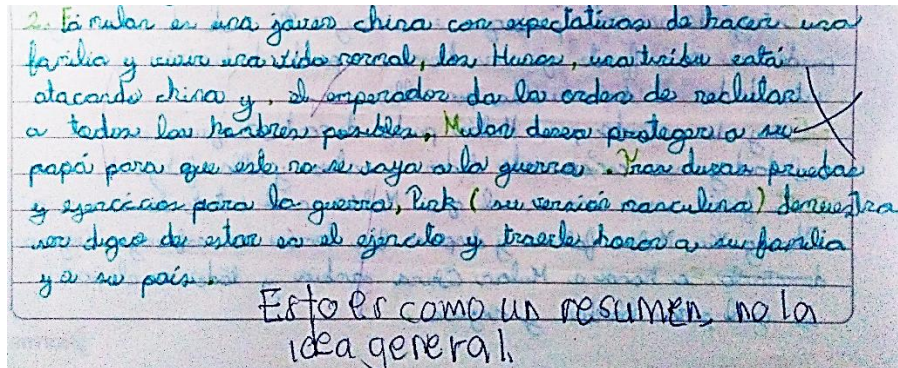 2. Fa mulan es una joven china con expectativas de hacer una
familia y vivir una vida normal, los Hunos, una tribu está
atacando china y, el emperador da la orden de reclutar
a todos los hombres posibles, Mulan desea proteger a su
papá para que este no se vaya a la guerra. Tras duras pruebas
y ejercicios para la guerra, Pink (su versión masculina) demuestra
ser digno de estar en el ejercito y traerle honor a su familia
y a su país.
Esto es como un resumen, no la
idea general.